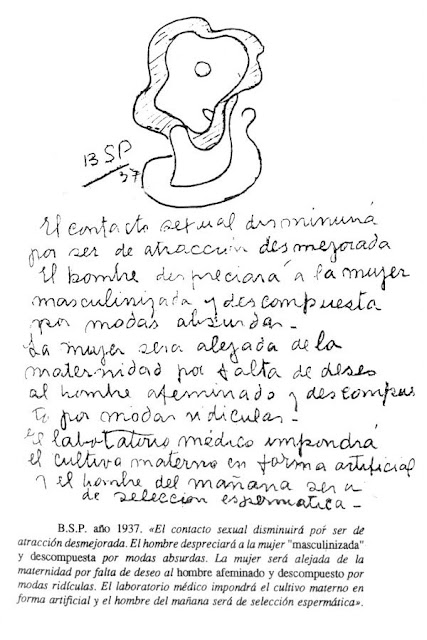 BSP
37
El contacto sexual disminuirá
por ser de atracción desmejorada
El hombre despreciará a la mujer
masculinizada y descompuesta
por modas absurdas -
La mujer sera alejada de la
maternidad por falta de deseo
al hombre afeminado y descompues
to por modas ridiculas -
El laboratorio médico impondrá
el cultivo materno en forma artificial
y el hombre del mañana sera
de selección espermatica -
B.S.P. año 1937. «El contacto sexual disminuirá por ser de
atracción desmejorada. El hombre despreciará a la mujer "masculinizada"
y descompuesta por modas absurdas. La mujer será alejada de la
maternidad por falta de deseo al hombre afeminado y descompuesto por
modas ridículas. El laboratorio médico impondrá el cultivo materno en
forma artificial y el hombre del mañana será de selección espermática».